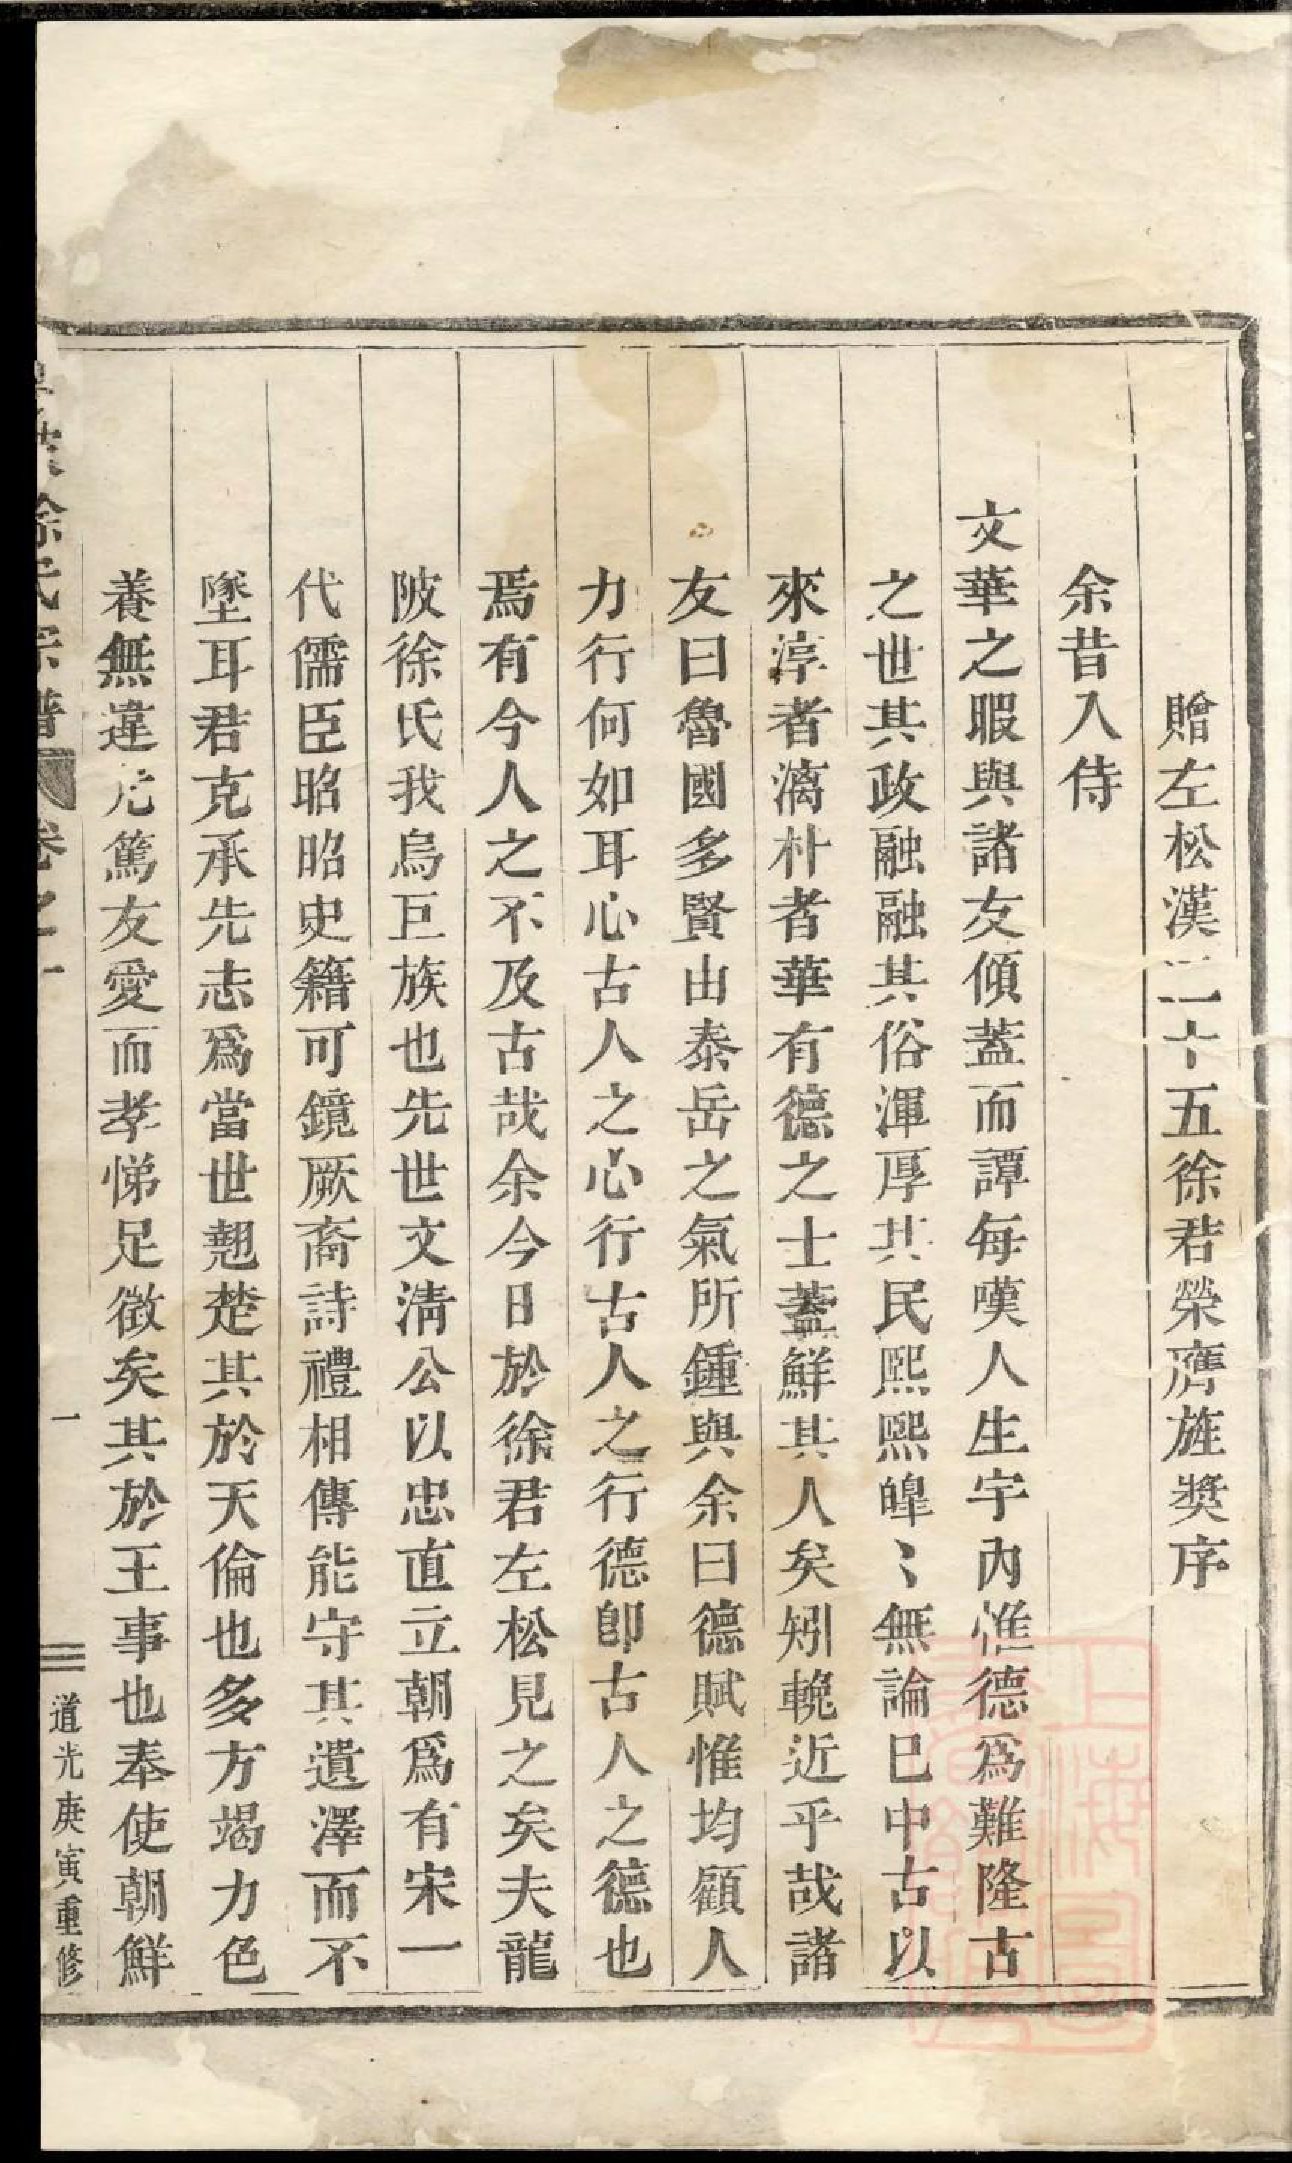 贈左松漢二十五徐君榮膺旌奬序
余昔入侍
文華之暇與諸友傾蓋而譚每嘆人生宇內惟德爲難隆古
之世其政融融其俗渾厚其民熙熙皞〻無論巳中古以
來淳者漓朴者華有德之士蓋鮮其人矣矧輓近乎哉諸
友曰魯國多賢由泰岳之氣所鍾與余曰德賦惟均顧人
力行何如耳心古人之心行古人之行德卽古人之德也
焉有今人之不及古哉余今日於徐君左松見之矣夫龍
陂徐氏我烏巨族也先世文淸公以忠直立朝爲有宋一
代儒臣昭昭史籍可鏡厥裔詩禮相傳能守其遺澤而不
墜耳君克承先志爲當世翹楚其於天倫也多方竭力色
養無違尤篤友愛而孝悌足徵矣其於王事也奉使朝鮮
徐氏宗譜 卷之一
一
道光庚寅重修
上海圖書館藏